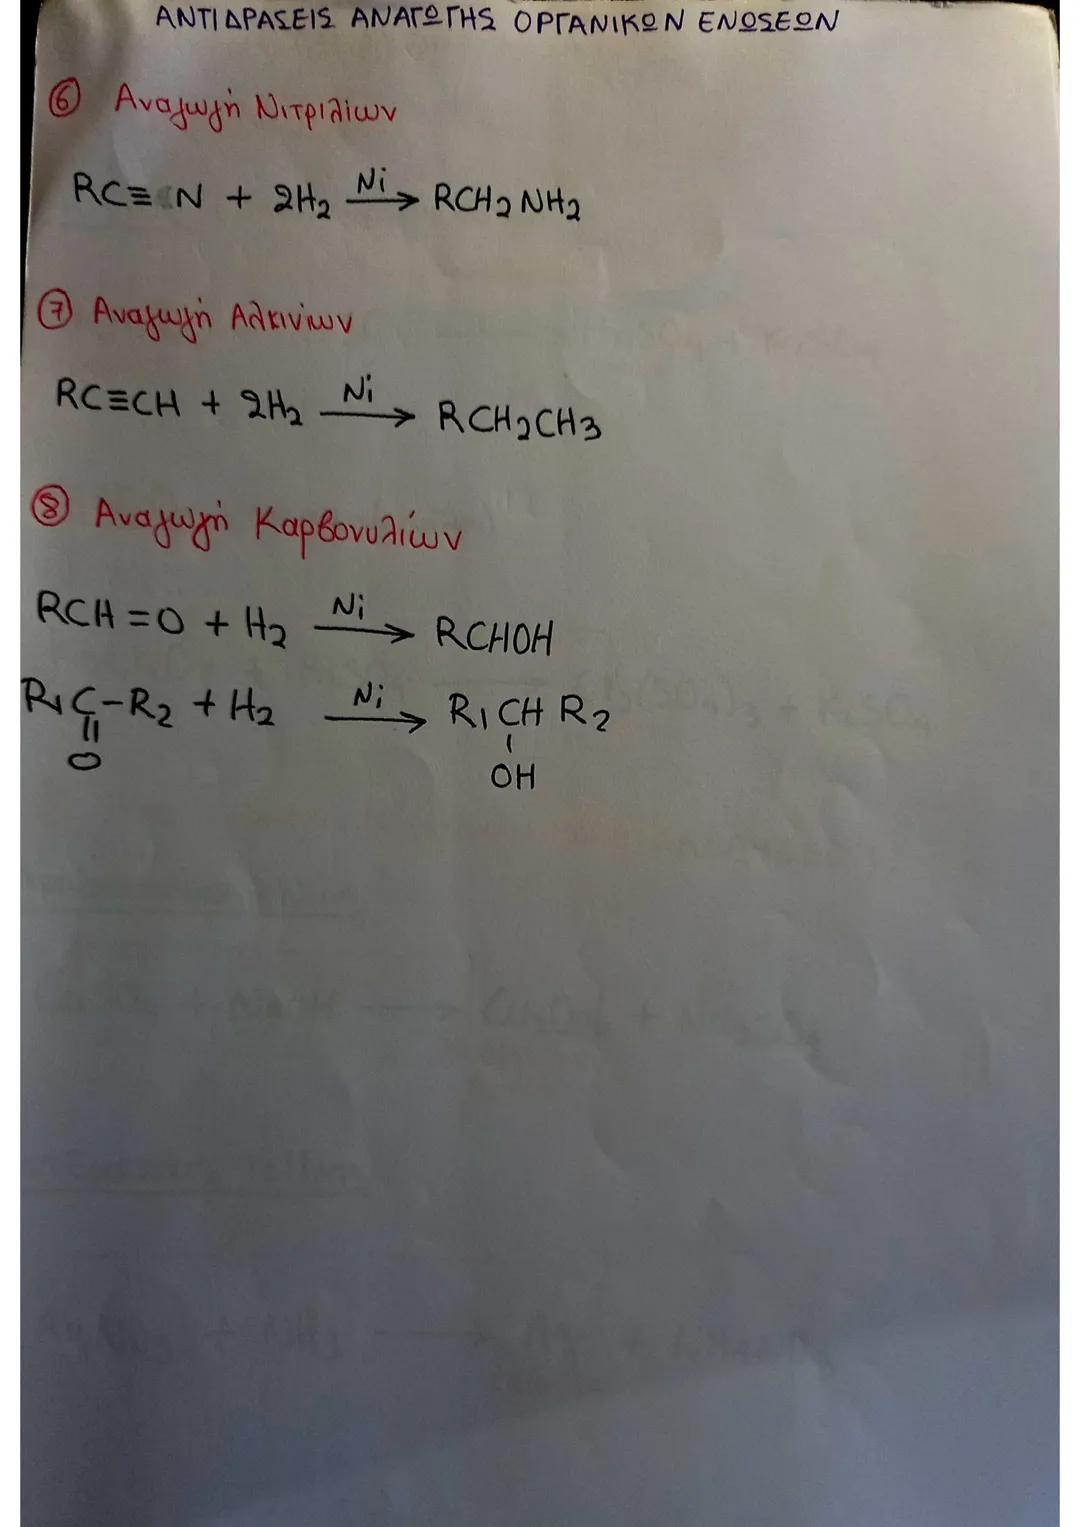 ΑΝΤΙΔΡΑΣΕΙΣ ΑΝΑΓΩΓΗΣ ΟΡΓΑΝΙΚΩΝ ΕΝΩΣΕΩΝ
⑥ Αναγωγή Νιτριλίων
RC≡N + 2H₂ —Ni→ RCH₂NH₂
⑦ Αναγωγή Αλκινίων
RC≡CH + 2H₂ —Ni→ RCH₂CH₃
⑧ Αναγωγή Καρβονυλίων
RCH=O + H₂ —Ni→ RCHOH
R₁C-R₂ + H₂ —Ni→ R₁CHR₂
O OH